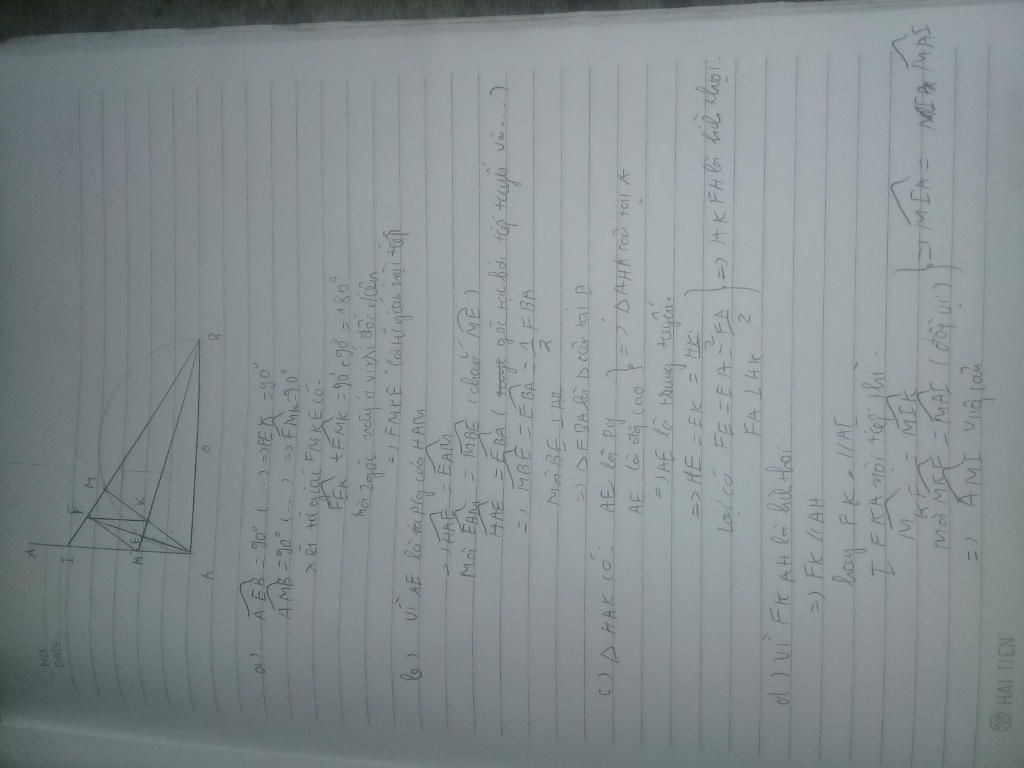 NO.
DATE
x
I
F
M
H
E
K
A
O
B
a) AEB = 90° (...) => FEK = 90°
AMB = 90° (...) => FMK = 90°
Xét tứ giác FMKE có:
FEK + FMK = 90° + 90° = 180°
mà 2 góc này ở vị trí đối diện
=> FMKE là tứ giác nội tiếp
b) Vì AE là tia pg của HAM
=> HAE = EAM
Mà EAM = MBE (chắn ME)
HAE = EBA ( góc tạo bởi tiếp tuyến và ...)
=> MBE = EBA = 1/2 FBA
Mà BE ⊥ AE
=> Δ FBA cân tại B
c) Δ HAK có:
AE là pg
AE là đg cao
} => Δ AHK cân tại A
=> AE là trung tuyến.
=> HE = EK = HK/2
Lại có FE = EA = FA/2
FA ⊥ HK
} => AKFH là hình thoi.
d) Vì FKAH là hình thoi
=> FK // AH
hay FK // AI
IFKA nội tiếp thì:
=> MIA = MAI
=> AMI vuông cân
HẢI TIẾN